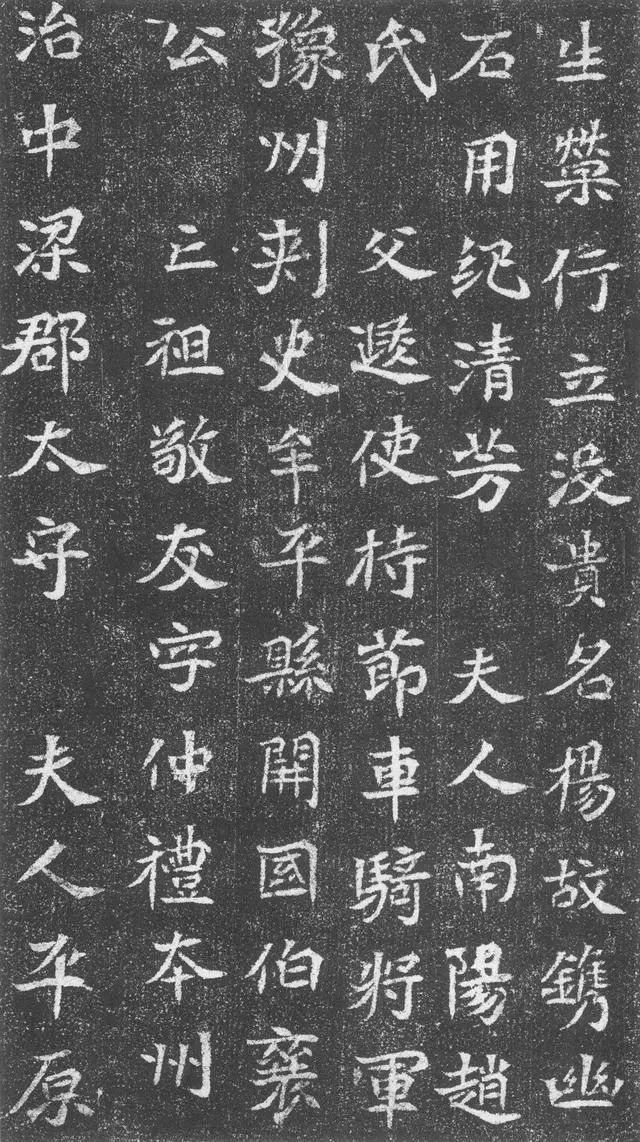 生榮行立没貴名楊故鐫幽
石用紀清芳 夫人南陽趙
氏 父遞使持節車騎將軍
豫州刺史牟平縣開國伯襄
公 亡祖敬友字仲禮本州
治中梁郡太守 夫人平原